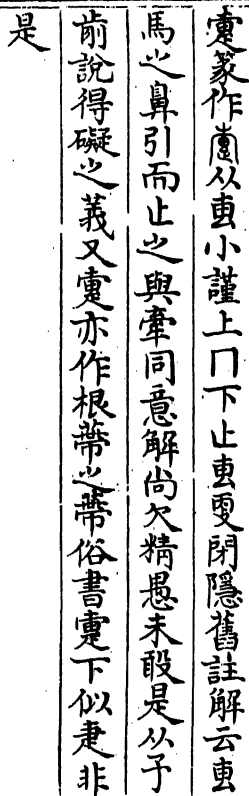 疐篆作𤴡从叀小謹上冂下止叀㪅閉隱舊註解云叀
馬之鼻引而止之與牽同意解尚欠精愚未敢是从子
前說得礙之義又疐亦作根蔕之蔕俗書疐下似疌非
是